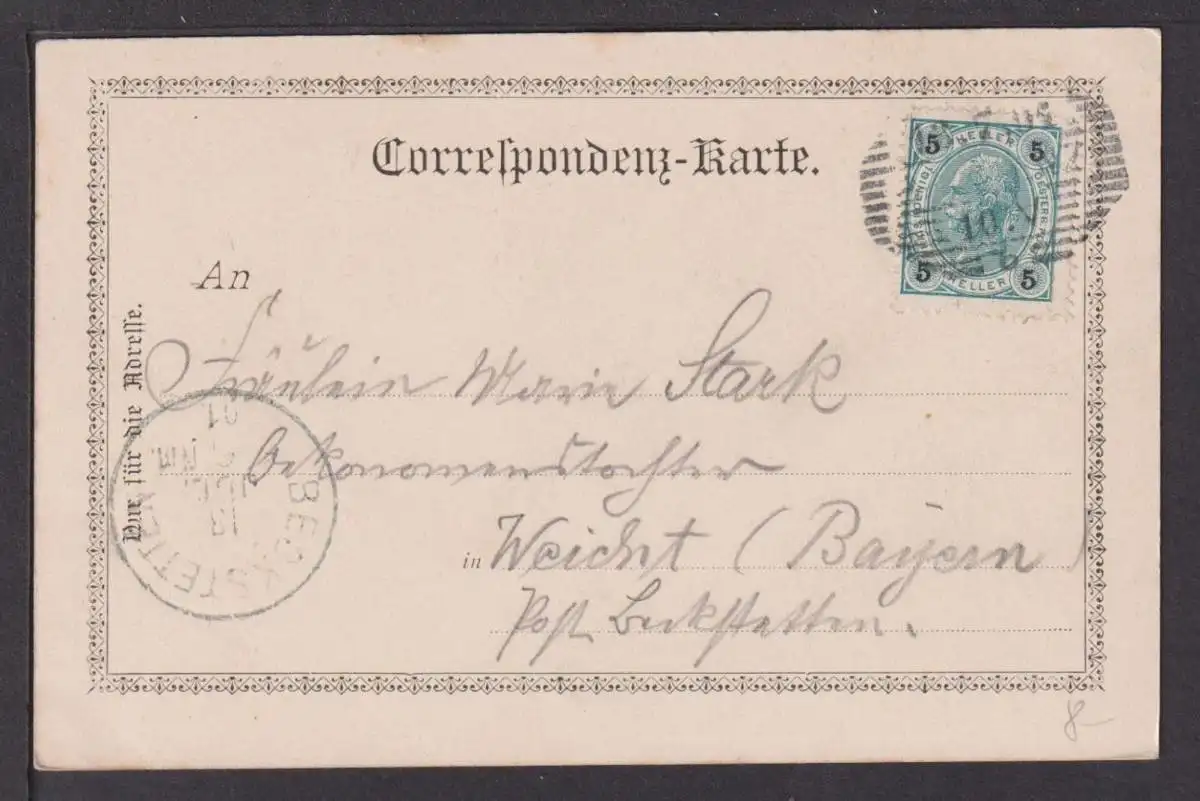 Correspondenz-Karte.
5 HELLER 5
5 HELLER 5
10
An
Nur für die Adresse.
Fräulein Marie Stark
Oekonomenstochter
in Weicht (Bayern)
Post Beckstetten.
BECKSTETTEN
13
JUL
Nm.
01
8